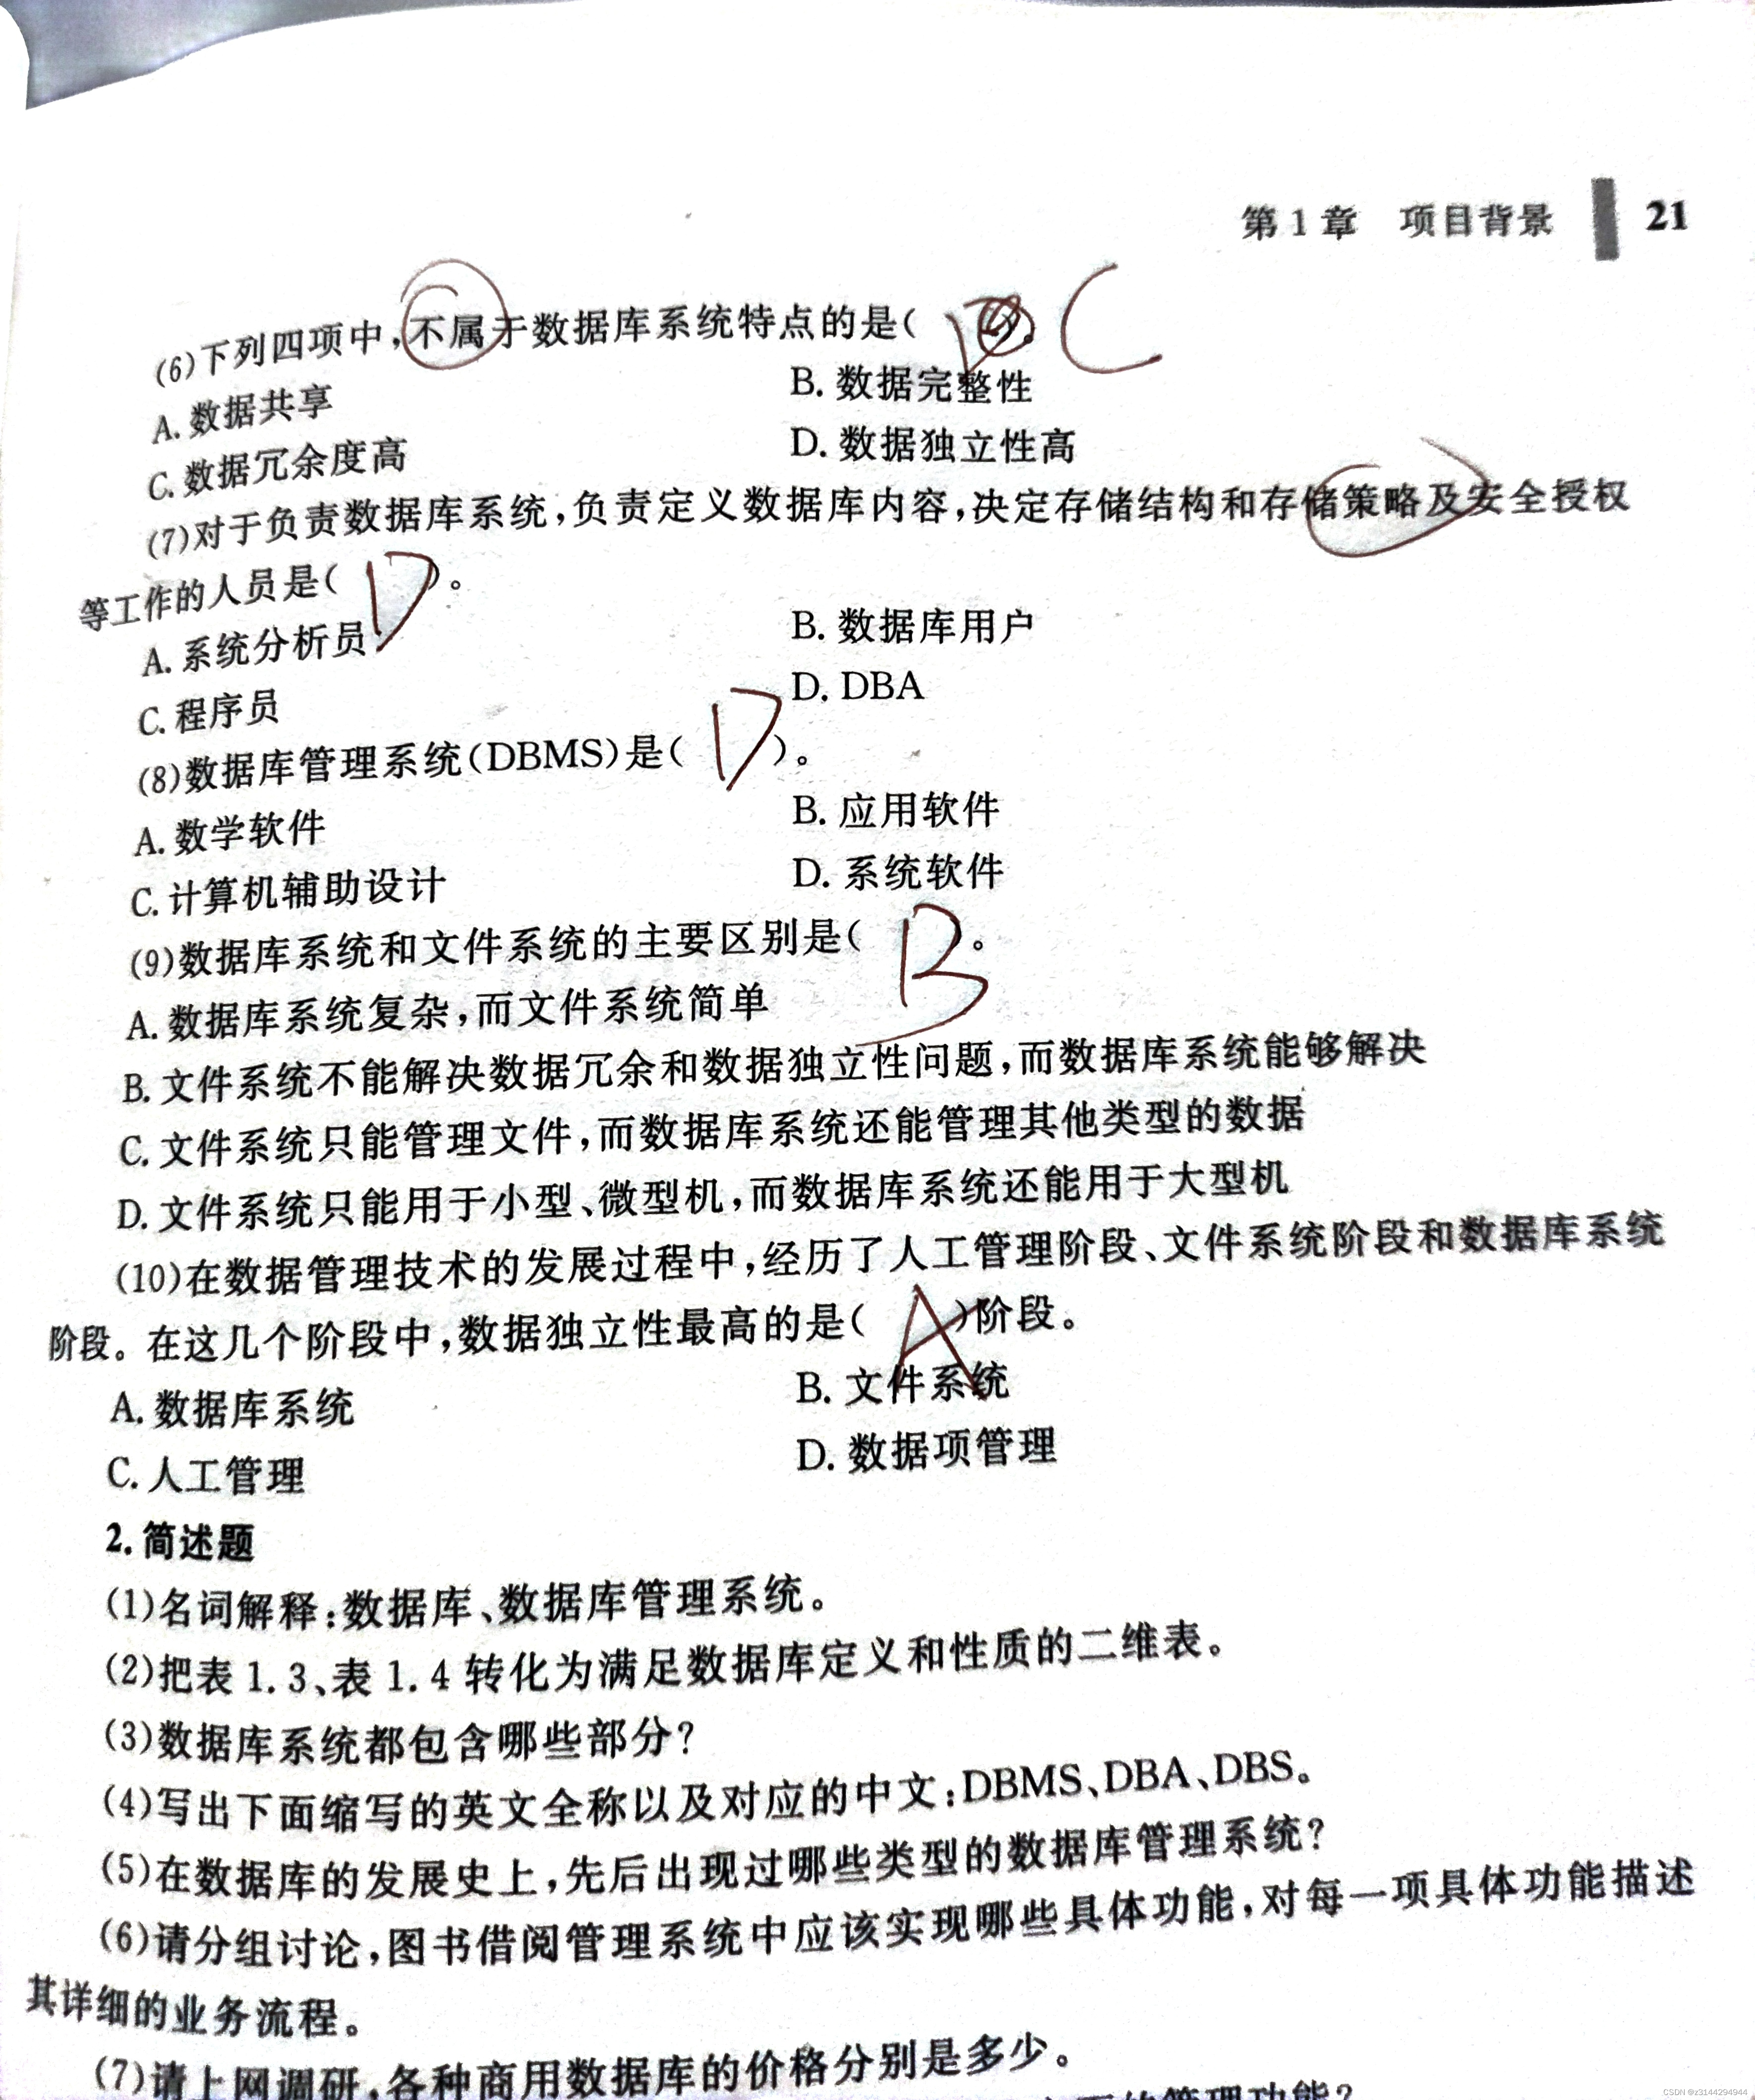 第1章 项目背景 21
(6)下列四项中,不属于数据库系统特点的是( D )。 C
A. 数据共享 B. 数据完整性
C. 数据冗余度高 D. 数据独立性高
(7)对于负责数据库系统,负责定义数据库内容,决定存储结构和存储策略及安全授权
等工作的人员是( D )。
A. 系统分析员 B. 数据库用户
C. 程序员 D. DBA
(8)数据库管理系统(DBMS)是( D )。
A. 数学软件 B. 应用软件
C. 计算机辅助设计 D. 系统软件
(9)数据库系统和文件系统的主要区别是( B )。
A. 数据库系统复杂,而文件系统简单
B. 文件系统不能解决数据冗余和数据独立性问题,而数据库系统能够解决
C. 文件系统只能管理文件,而数据库系统还能管理其他类型的数据
D. 文件系统只能用于小型、微型机,而数据库系统还能用于大型机
(10)在数据管理技术的发展过程中,经历了人工管理阶段、文件系统阶段和数据库系统
阶段。在这几个阶段中,数据独立性最高的是( A )阶段。
A. 数据库系统 B. 文件系统
C. 人工管理 D. 数据项管理
2. 简述题
(1)名词解释:数据库、数据库管理系统。
(2)把表 1.3、表 1.4 转化为满足数据库定义和性质的二维表。
(3)数据库系统都包含哪些部分?
(4)写出下面缩写的英文全称以及对应的中文:DBMS、DBA、DBS。
(5)在数据库的发展史上,先后出现过哪些类型的数据库管理系统?
(6)请分组讨论,图书借阅管理系统中应该实现哪些具体功能,对每一项具体功能描述
其详细的业务流程。
(7)请上网调研,各种商用数据库的价格分别是多少。
的管理功能?
CSDN @z3144294944